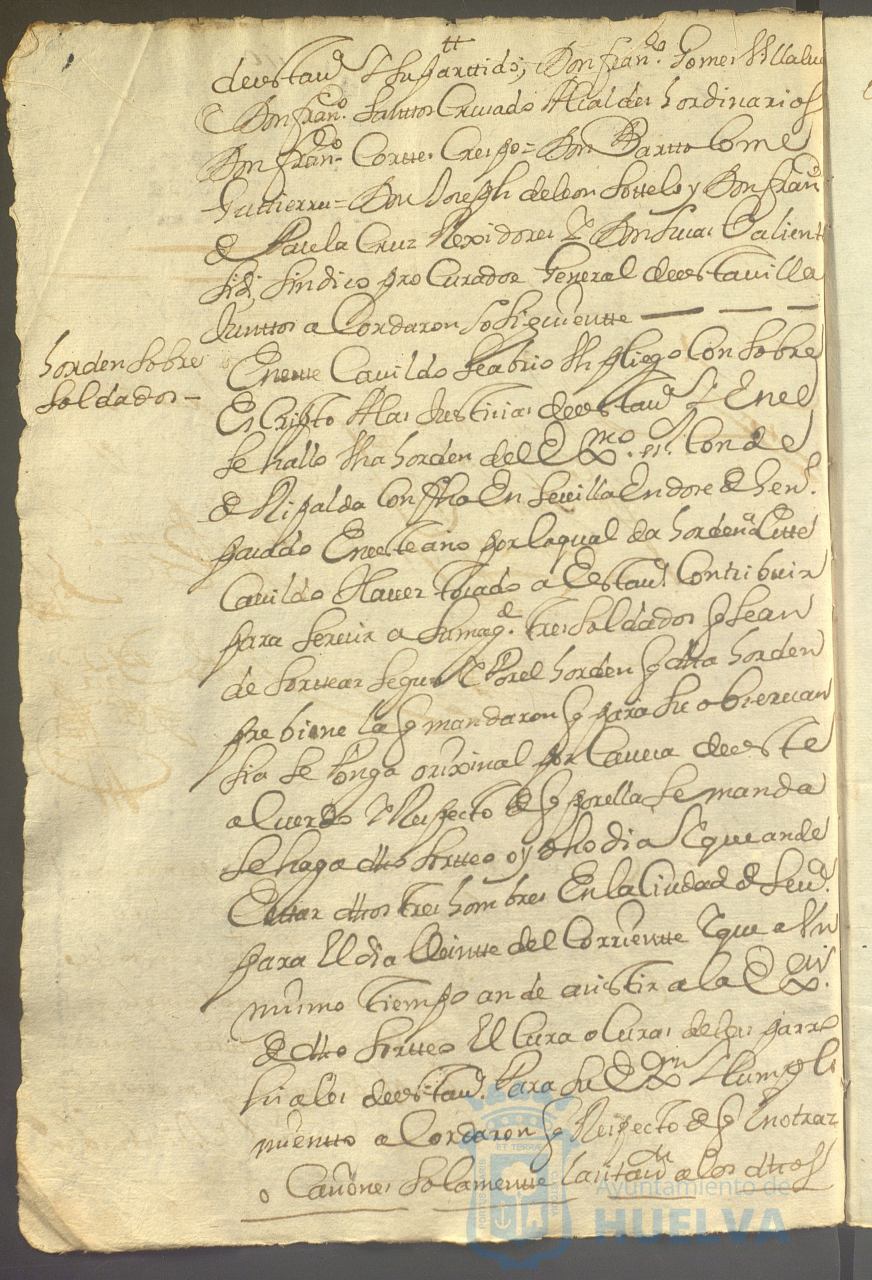 deestaVª y su parttido, Don Franco. Gomes Villalua
Don Franco. Santtos Cruzado Alcaldes hordinarios
Don Franco. Corttes Crespo = Don Barttolome
Guttierrez = Don Joseph de leon Sottelo y Don Franco
de Paula Cruz Rexidores y Don Lucas Calientte
sindico procurador General deesta villa
Junttos acordaron lo siguientte
horden sobre
soldados -
En este Cavildo se abrio Un pliego Con sobre
Escripto A las Justicias deestaVª y En el
se hallo Una horden del Exmo. Sr. Conde
de Ripalda Con fha En sevilla En dose de hen.º
pasado En este año por la qual da horden a Este
Cavildo Haver tocado a Esta Vª. Contribuir
para servir a su magd. tres soldados q sean
de sorttear segun y por el horden q dha horden
previene la q mandaron q para su observan
sia se ponga orixinal por Cavesa de este
acuerdo y Respecto de q por ella se manda
se haga dho sortteo oy dho dia y que an de
Estar dhos tres hombres En la Ciudad de Seva.
para El dia Veintte del Corrientte y que a Un
mismo tiempo an de asistir a la Ex.on
de dho sortteo El Cura o Curas de las parro
quiales deestaVª. Para su Exon y Cumpli
mientto acordaron q Respecto de q En otras
o Casiones solamentte la citado a los dhos
Ayuntamiento de
HUELVA